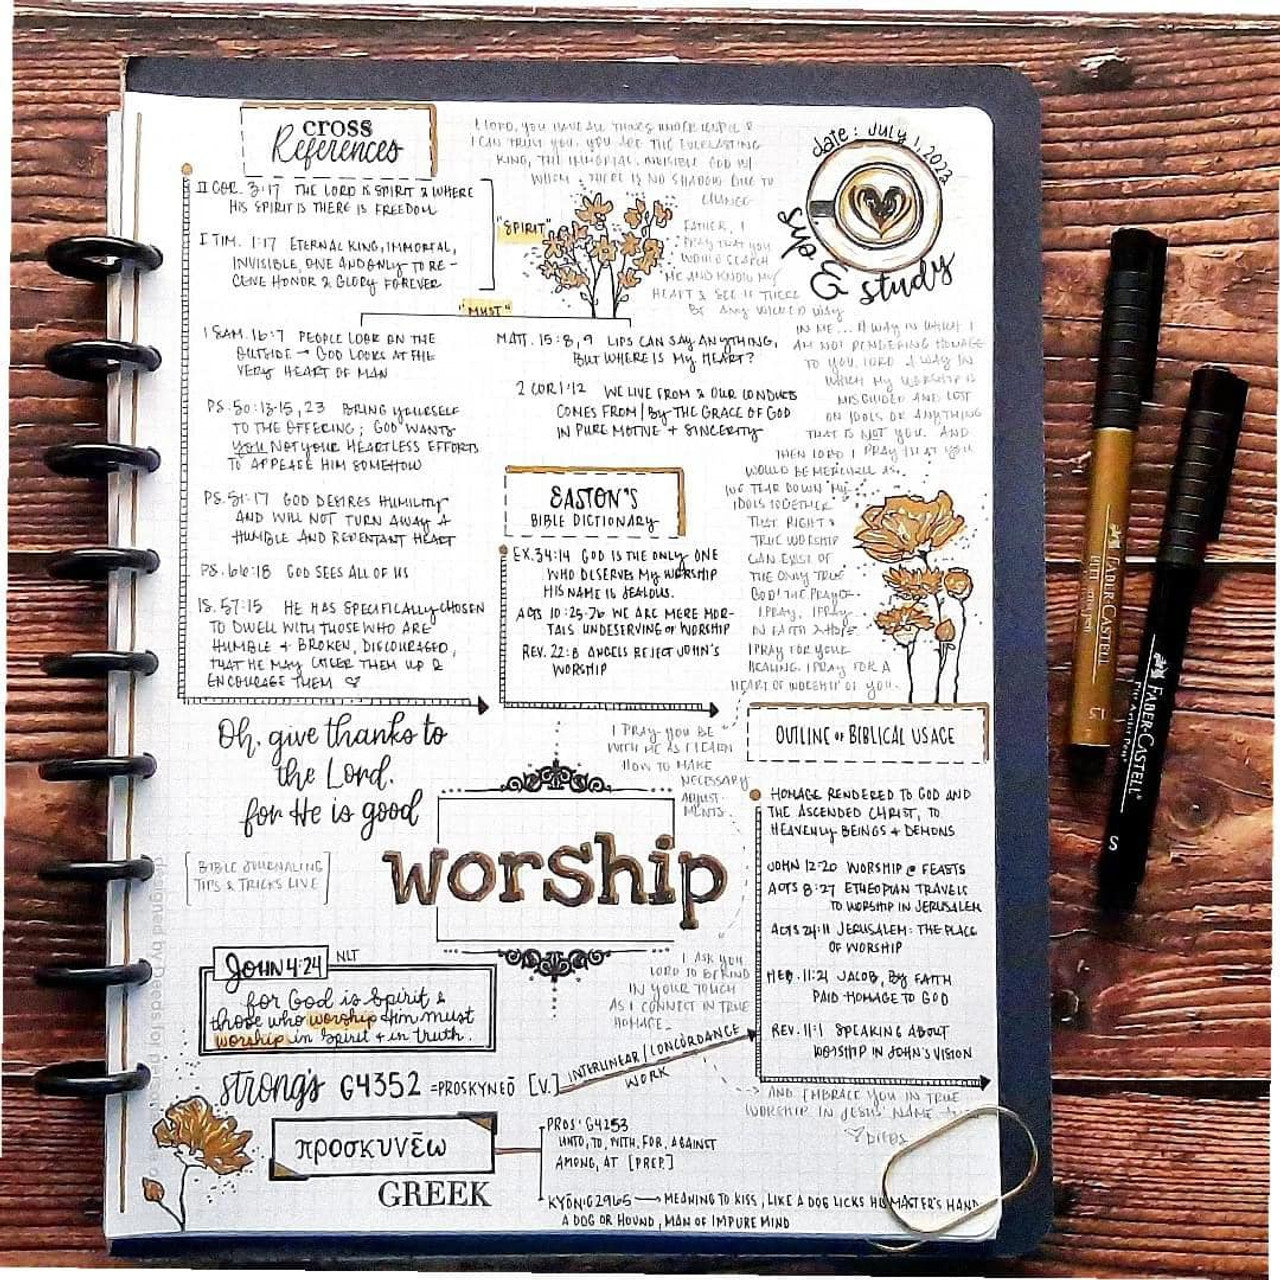 cross
References
II COR. 3:17 THE LORD IS SPIRIT & WHERE
HIS SPIRIT IS THERE IS FREEDOM
I TIM. 1:17 ETERNAL KING, IMMORTAL,
INVISIBLE, ONE AND ONLY TO RE-
CEIVE HONOR & GLORY FOREVER
"SPIRIT"
"MUST"
1 SAM. 16:7 PEOPLE LOOK ON THE
OUTSIDE → GOD LOOKS AT THE
VERY HEART OF MAN
PS. 50:13-15, 23 BRING YOURSELF
TO THE OFFERING; GOD WANTS
YOU NOT YOUR HEARTLESS EFFORTS
TO APPEASE HIM SOMEHOW
PS. 51:17 GOD DESIRES HUMILITY
AND WILL NOT TURN AWAY A
HUMBLE AND REPENTANT HEART
PS. 66:18 GOD SEES ALL OF US
IS. 57:15 HE HAS SPECIFICALLY CHOSEN
TO DWELL WITH THOSE WHO ARE
HUMBLE + BROKEN, DISCOURAGED,
THAT HE MAY CHEER THEM UP &
ENCOURAGE THEM ♡
MATT. 15:8,9 LIPS CAN SAY ANYTHING,
BUT WHERE IS MY HEART?
2 COR 1:12 WE LIVE FROM & OUR CONDUCT
COMES FROM / BY THE GRACE OF GOD
IN PURE MOTIVE + SINCERITY
EASTON'S
BIBLE DICTIONARY
EX. 34:14 GOD IS THE ONLY ONE
WHO DESERVES MY WORSHIP
HIS NAME IS JEALOUS.
ACTS 10:25-26 WE ARE MERE MOR-
TALS UNDESERVING OF WORSHIP
REV. 22:8 ANGELS REJECT JOHN'S
WORSHIP
LORD, YOU HAVE ALL THINGS UNDER CONTROL &
I CAN TRUST YOU. YOU ARE THE EVERLASTING
KING, THE IMMORTAL, INVISIBLE GOD W/
WHOM THERE IS NO SHADOW DUE TO
CHANGE
FATHER, I
PRAY THAT YOU
WOULD SEARCH
ME AND KNOW MY
HEART & SEE IF THERE
BE ANY WICKED WAY
IN ME... A WAY IN WHICH I
AM NOT RENDERING HOMAGE
TO YOU, LORD A WAY IN
WHICH MY WORSHIP IS
MISGUIDED AND LOST
ON IDOLS OR ANYTHING
THAT IS NOT YOU. AND
THEN LORD I PRAY THAT YOU
WOULD BE MERCIFUL AS
WE TEAR DOWN MY
IDOLS TOGETHER
THAT RIGHT &
TRUE WORSHIP
CAN EXIST OF
THE ONLY TRUE
GOD! THE PRAYER
I PRAY, I PRAY
IN FAITH & HOPE
I PRAY FOR YOUR
HEALING. I PRAY FOR A
HEART OF WORSHIP OF YOU.
date: July 1, 2023
sip & study
Oh, give thanks to
the Lord,
for He is good
[BIBLE JOURNALING
TIPS & TRICKS LIVE]
I PRAY YOU BE
WITH ME AS I LEARN
HOW TO MAKE
NECESSARY
ADJUST-
MENTS.
worship
OUTLINE OF BIBLICAL USAGE
HOMAGE RENDERED TO GOD AND
THE ASCENDED CHRIST, TO
HEAVENLY BEINGS + DEMONS
JOHN 12:20 WORSHIP @ FEASTS
ACTS 8:27 ETHEOPIAN TRAVELS
TO WORSHIP IN JERUSALEM
ACTS 24:11 JERUSALEM: THE PLACE
OF WORSHIP
HEB. 11:21 JACOB, BY FAITH
PAID HOMAGE TO GOD
REV. 11:1 SPEAKING ABOUT
WORSHIP IN JOHN'S VISION
JOHN 4:24 NLT
for God is Spirit &
those who worship Him must
worship in spirit + in truth.
I ASK YOU
LORD TO
IN YOUR TOUCH
AS I CONNECT IN TRUE
HOMAGE
AND EMBRACE YOU IN TRUE
WORSHIP IN JESUS' NAME
strong's G4352 = PROSKYNEŌ [V.]
INTERLINEAR / CONCORDANCE
WORK
προσκυνέω
GREEK
PROS: G4253
UNTO, TO, WITH, FOR, AGAINST
AMONG, AT [PREP.]
KYŌN: G2965 → MEANING TO KISS, LIKE A DOG LICKS HIS MASTER'S HAND
A DOG OR HOUND, MAN OF IMPURE MIND
FABER-CASTELL
PITT artist pen
FABER-CASTELL
S